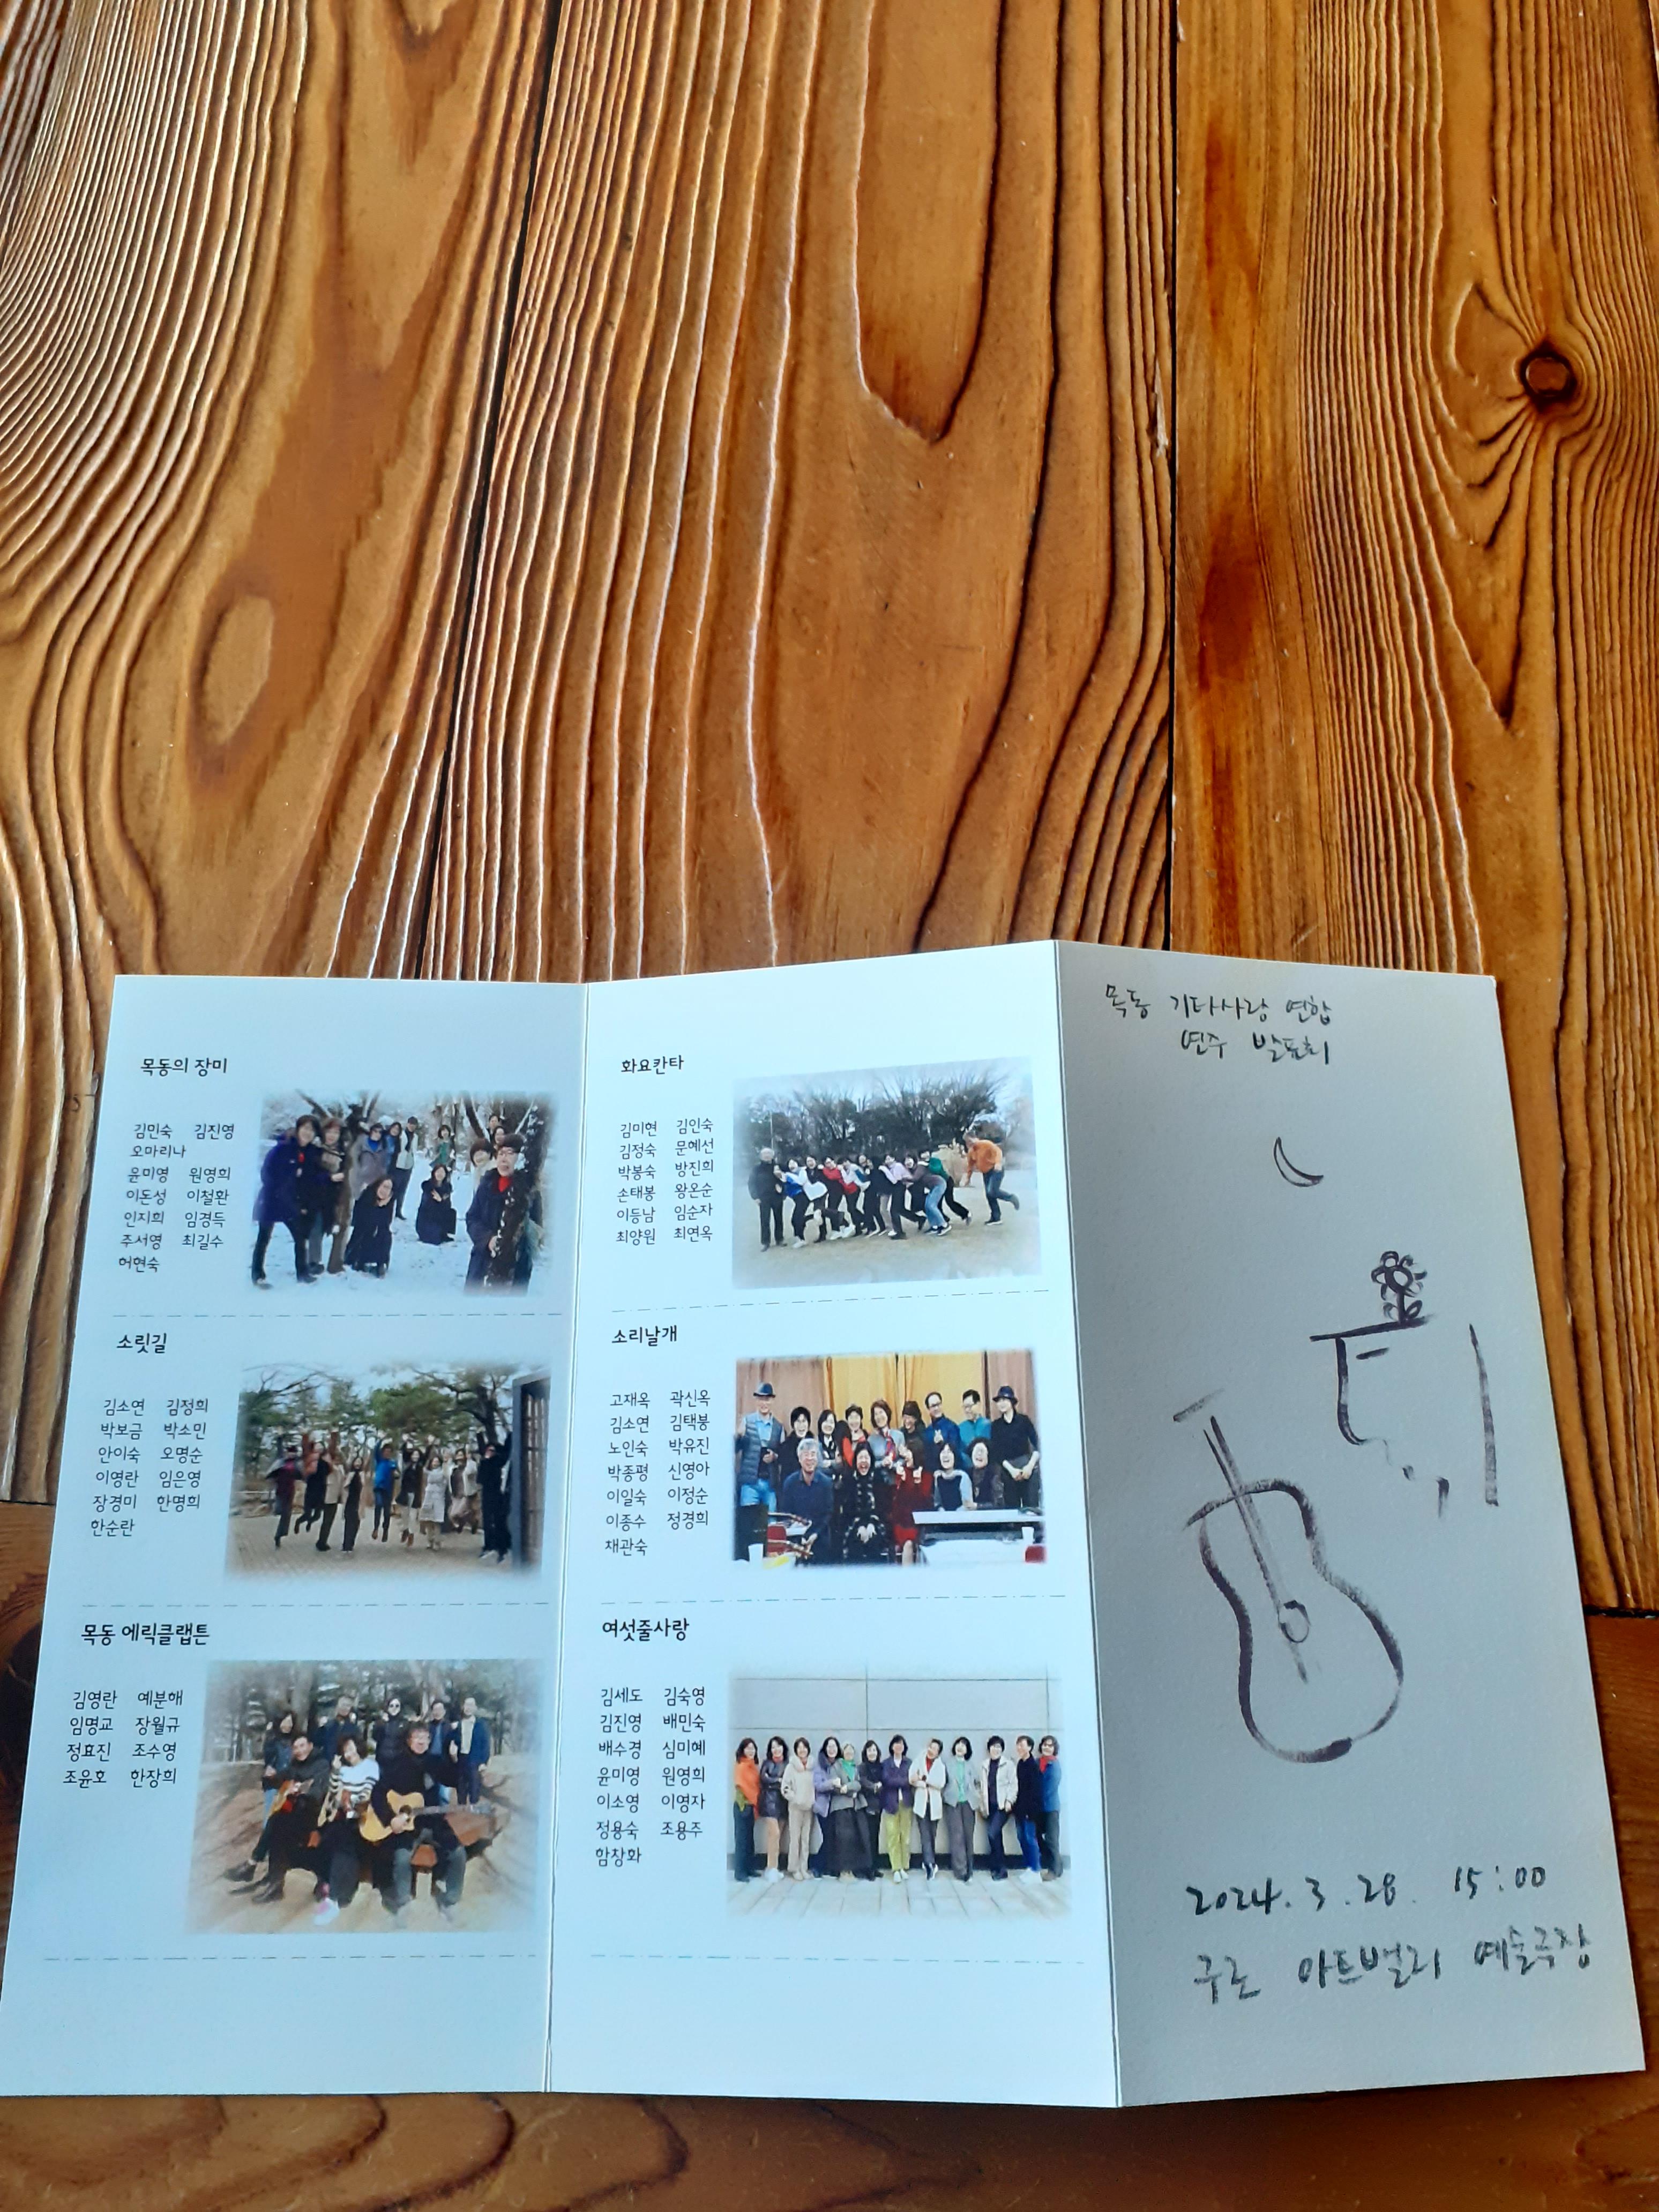 목동의 장미
김민숙 김진영
오마리나
윤미영 원영희
이돈성 이철환
인지희 임경득
주서영 최길수
허현숙
소릿길
김소연 김정희
박보금 박소민
안이숙 오명순
이영란 임은영
장경미 한명희
한순란
목동 에릭클랩튼
김영란 예분해
임명교 장월규
정효진 조수영
조윤호 한장희
화요칸타
김미현 김인숙
김정숙 문혜선
박봉숙 방진희
손태봉 왕온순
이등남 임순자
최양원 최연옥
소리날개
고재옥 곽신옥
김소연 김택봉
노인숙 박유진
박종평 신영아
이일숙 이정순
이종수 정경희
채관숙
여섯줄사랑
김세도 김숙영
김진영 배민숙
배수경 심미혜
윤미영 원영희
이소영 이영자
정용숙 조용주
함창화
목동 기타사랑 연합
연주 발표회
2024.3.28. 15:00
구로 아트밸리 예술극장